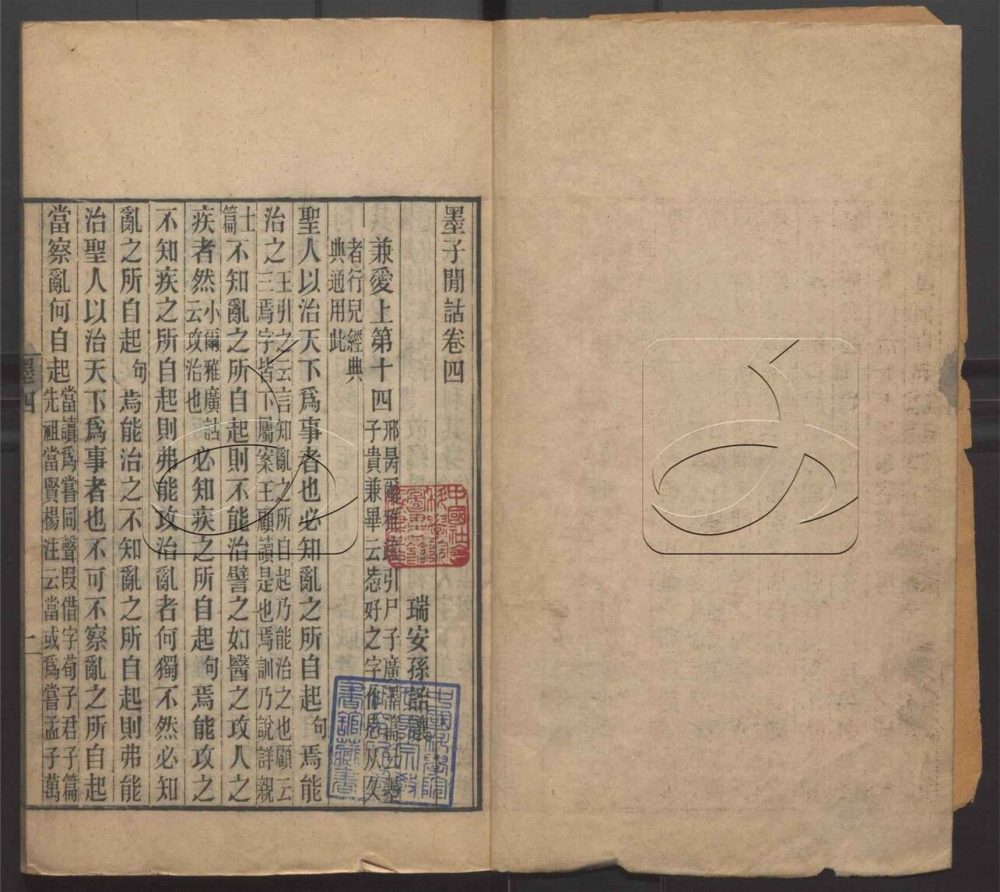 墨子閒詁卷四
瑞安孫詒讓
兼愛上第十四邢昺爾雅疏引尸子廣澤篇云墨子貴兼畢云㤅好之字作㤅从夊
者行皃經典典通用此
聖人以治天下爲事者也必知亂之所自起句焉能
治之王引之云言知亂之所自起乃能治之也顧云三焉字皆下屬案王顧讀是也焉訓乃說詳親
士篇不知亂之所自起則不能治譬之如醫之攻人之
疾者然小爾雅廣詁云攻治也必知疾之所自起句焉能攻之
不知疾之所自起則弗能攻治亂者何獨不然必知
亂之所自起句焉能治之不知亂之所自起則弗能
治聖人以治天下爲事者也不可不察亂之所自起
當察亂何自起當讀爲嘗同聲叚借字荀子君子篇先祖當賢楊注云當或爲嘗孟子萬
墨四
一